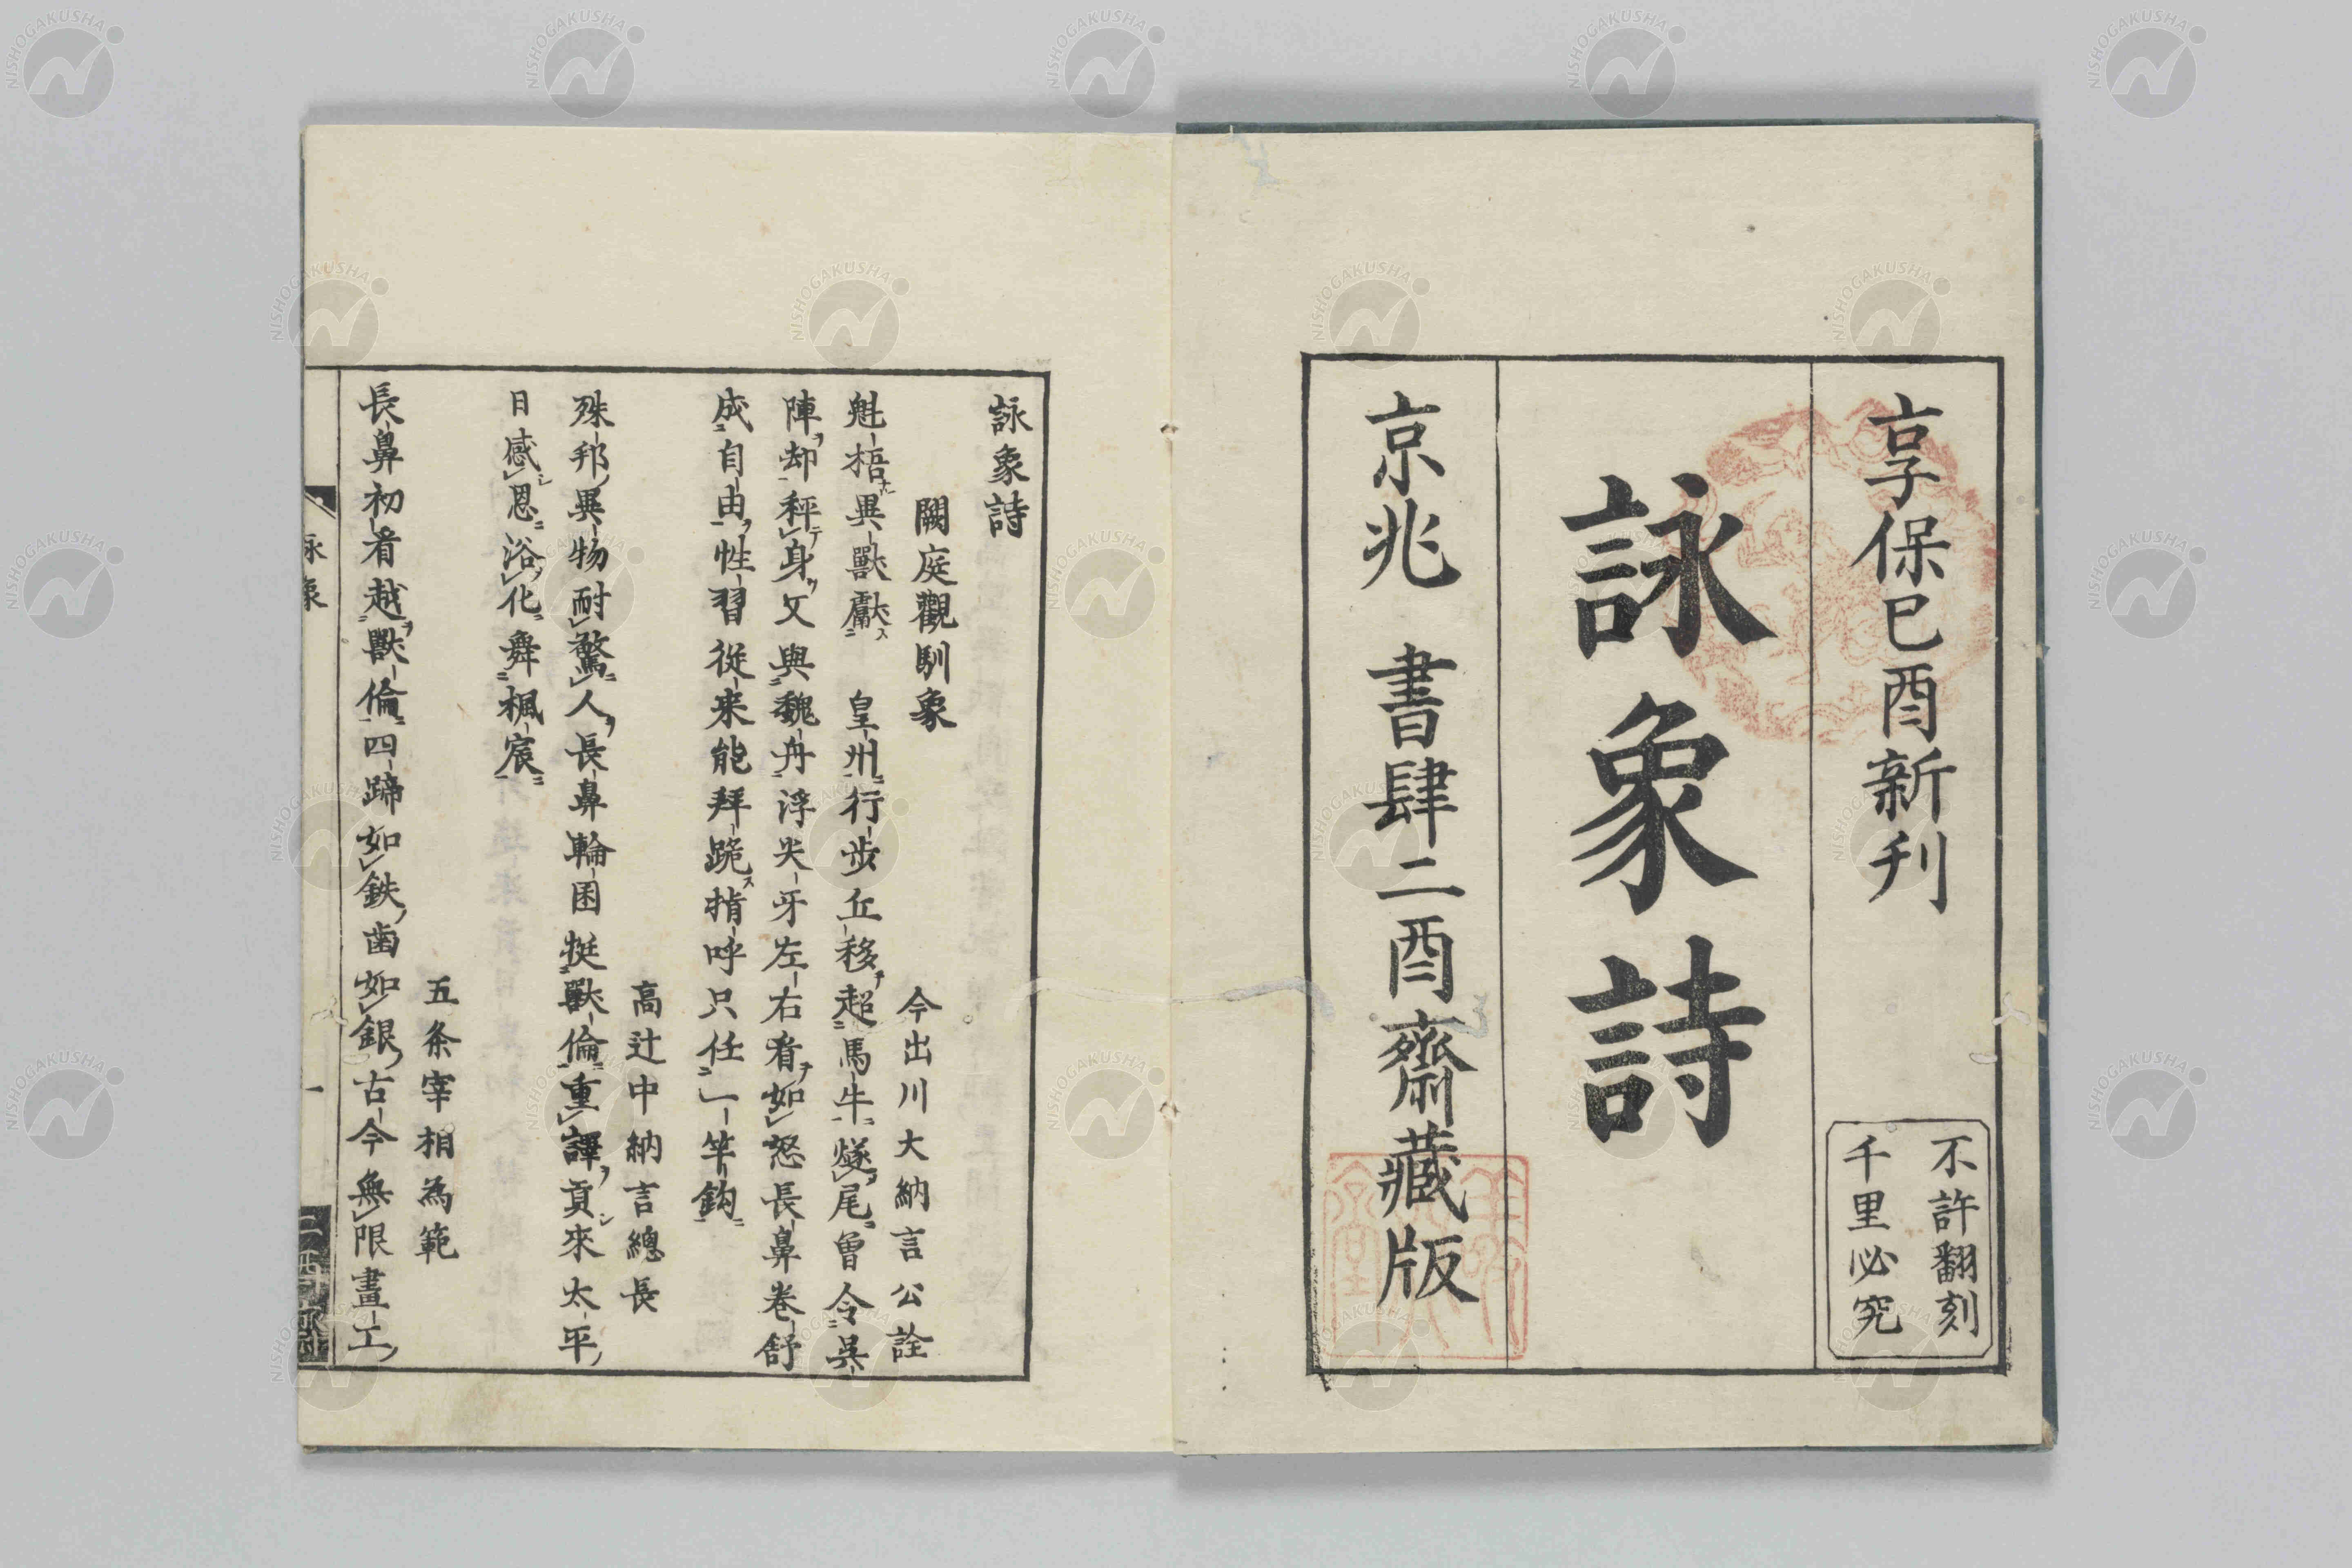 享保己酉新刊
不許翻刻
千里必究
詠象詩
京兆 書肆二酉齋藏版
詠象詩
闕庭觀馴象
今出川大納言公詮
魁梧異獸獻 皇州行步丘移超馬牛燧尾曾令吳
陣却秤身又與魏舟浮尖牙左右看如怒長鼻卷舒
成自由性習從来能拜跪指呼只任一竿鈎
高辻中納言總長
殊邦異物耐驚人長鼻輪囷挺獸倫重譯貢來太平
日感恩浴化舞楓宸
五条宰相為範
長鼻初看越獸倫四蹄如鉄歯如銀古今無限畫工
詠象
一
NISHOGAKUSHA